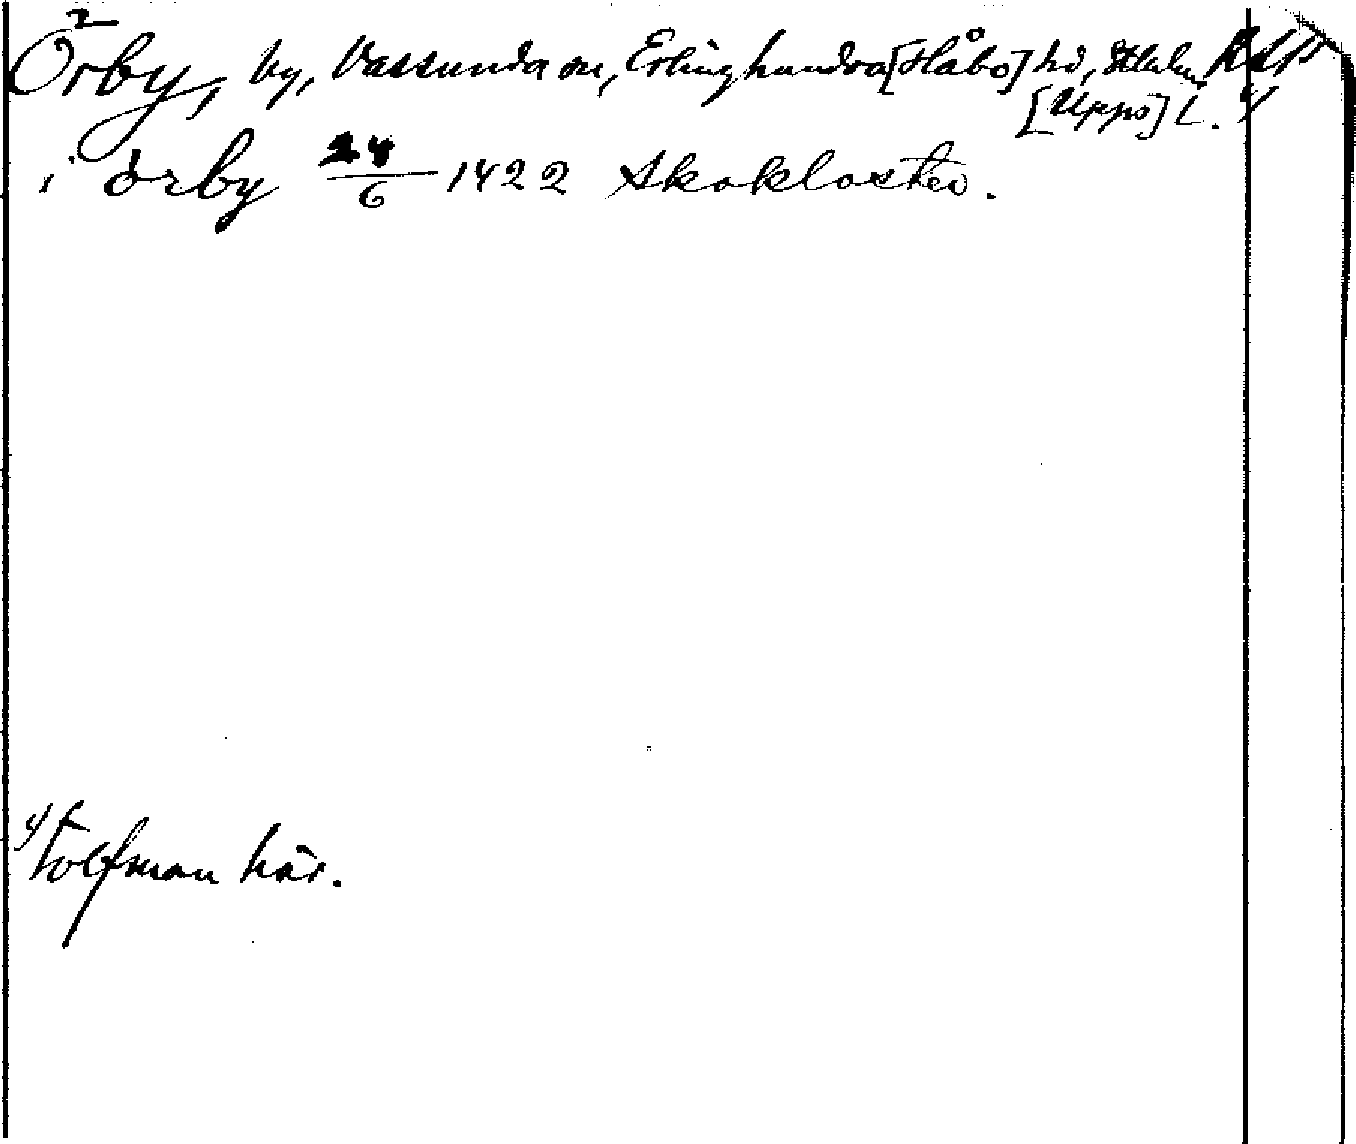 2
Örby, by, Vassunda sn, Erlinghundra [Håbo] hd, Sthlm
[Upps] l. 1)
i örby 24/6 1422 Skokloster.
1) Tolfman här.